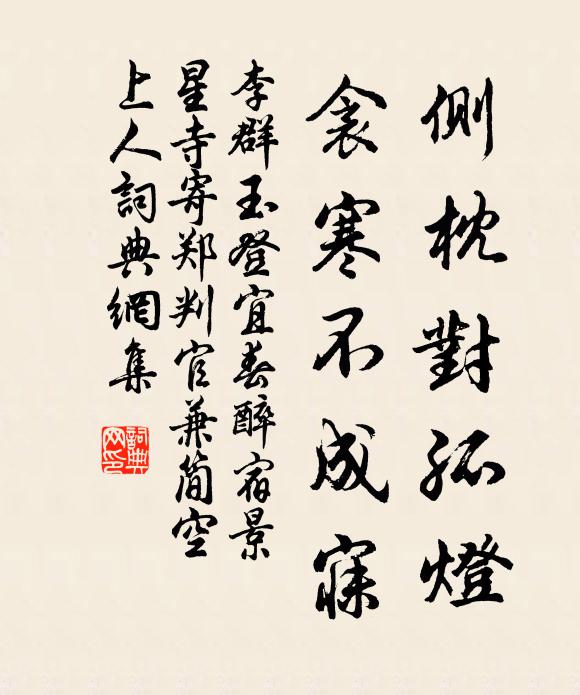 側枕對孤燈
衾寒不成寐
李群玉登宜春醉宿景
星寺寄郑判官兼简空
上人詞典網集
詞典
网印